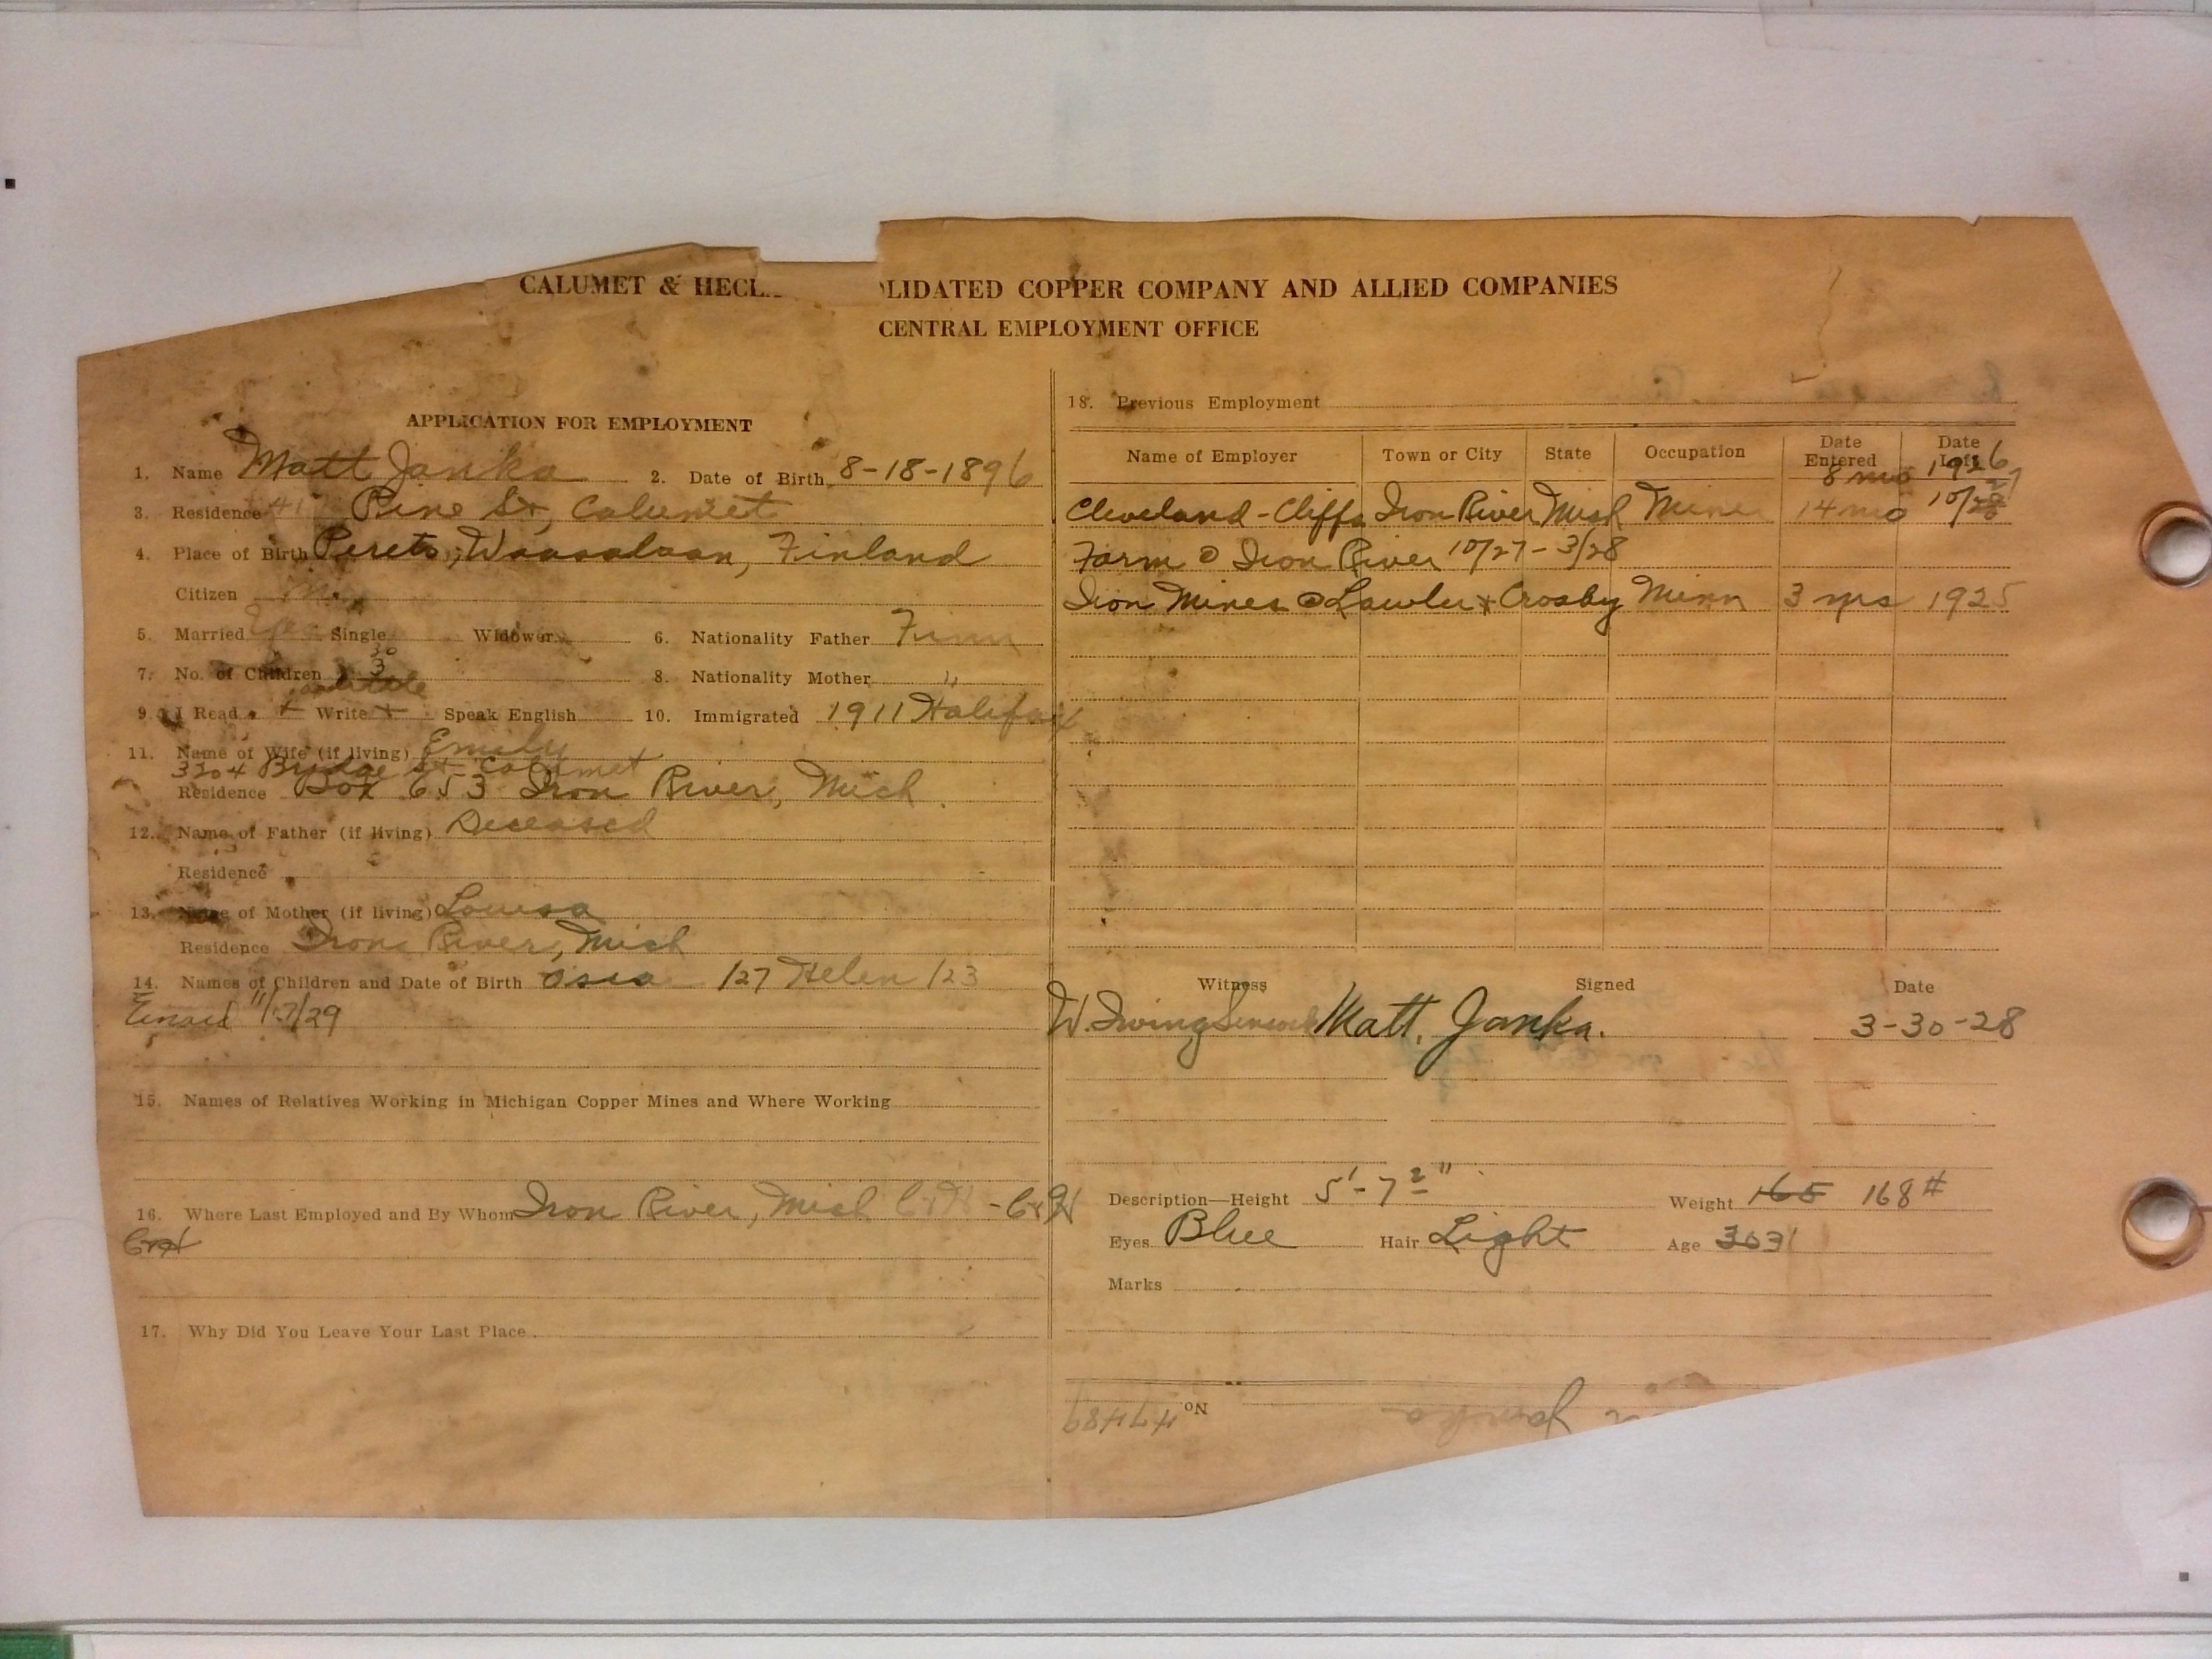 CALUMET & HECL
OLIDATED COPPER COMPANY AND ALLIED COMPANIES
CENTRAL EMPLOYMENT OFFICE
APPLICATION FOR EMPLOYMENT
1. Name Matt Janka 2. Date of Birth 8-18-1896
3. Residence Pine St, Calumet
4. Place of Birth Waasalaan, Finland
Citizen
5. Married Yes Single Widower 6. Nationality Father Finn
7. No. of Children 3 8. Nationality Mother "
little
9. I Read x Write x Speak English 10. Immigrated 1911 Halifax
11. Name of Wife (if living) Emily
3204 Bridge St Calumet
Residence Box 653 Iron River, Mich
12. Name of Father (if living) Deceased
Residence
13. Name of Mother (if living) Louisa
Residence Iron River, Mich
14. Names of Children and Date of Birth /27 Helen /23
/29
15. Names of Relatives Working in Michigan Copper Mines and Where Working
16. Where Last Employed and By Whom Iron River, Mich C&H - C&H
C&H
17. Why Did You Leave Your Last Place
18. Previous Employment
Name of Employer Town or City State Occupation Date Entered Date Left
8 mo 1926
Cleveland-Cliffs Iron River Mich Miner 14 mo 10/
Farm @ Iron River 10/27 - 3/28
Iron Mines @ Lawler & Crosby Minn 3 yrs 1925
Witness Signed Date
W. Irving Matt. Janka. 3-30-28
Description—Height 5'-7 2" Weight 165 168#
Eyes Blue Hair Light Age 30 31
Marks
No. 47489
Janka